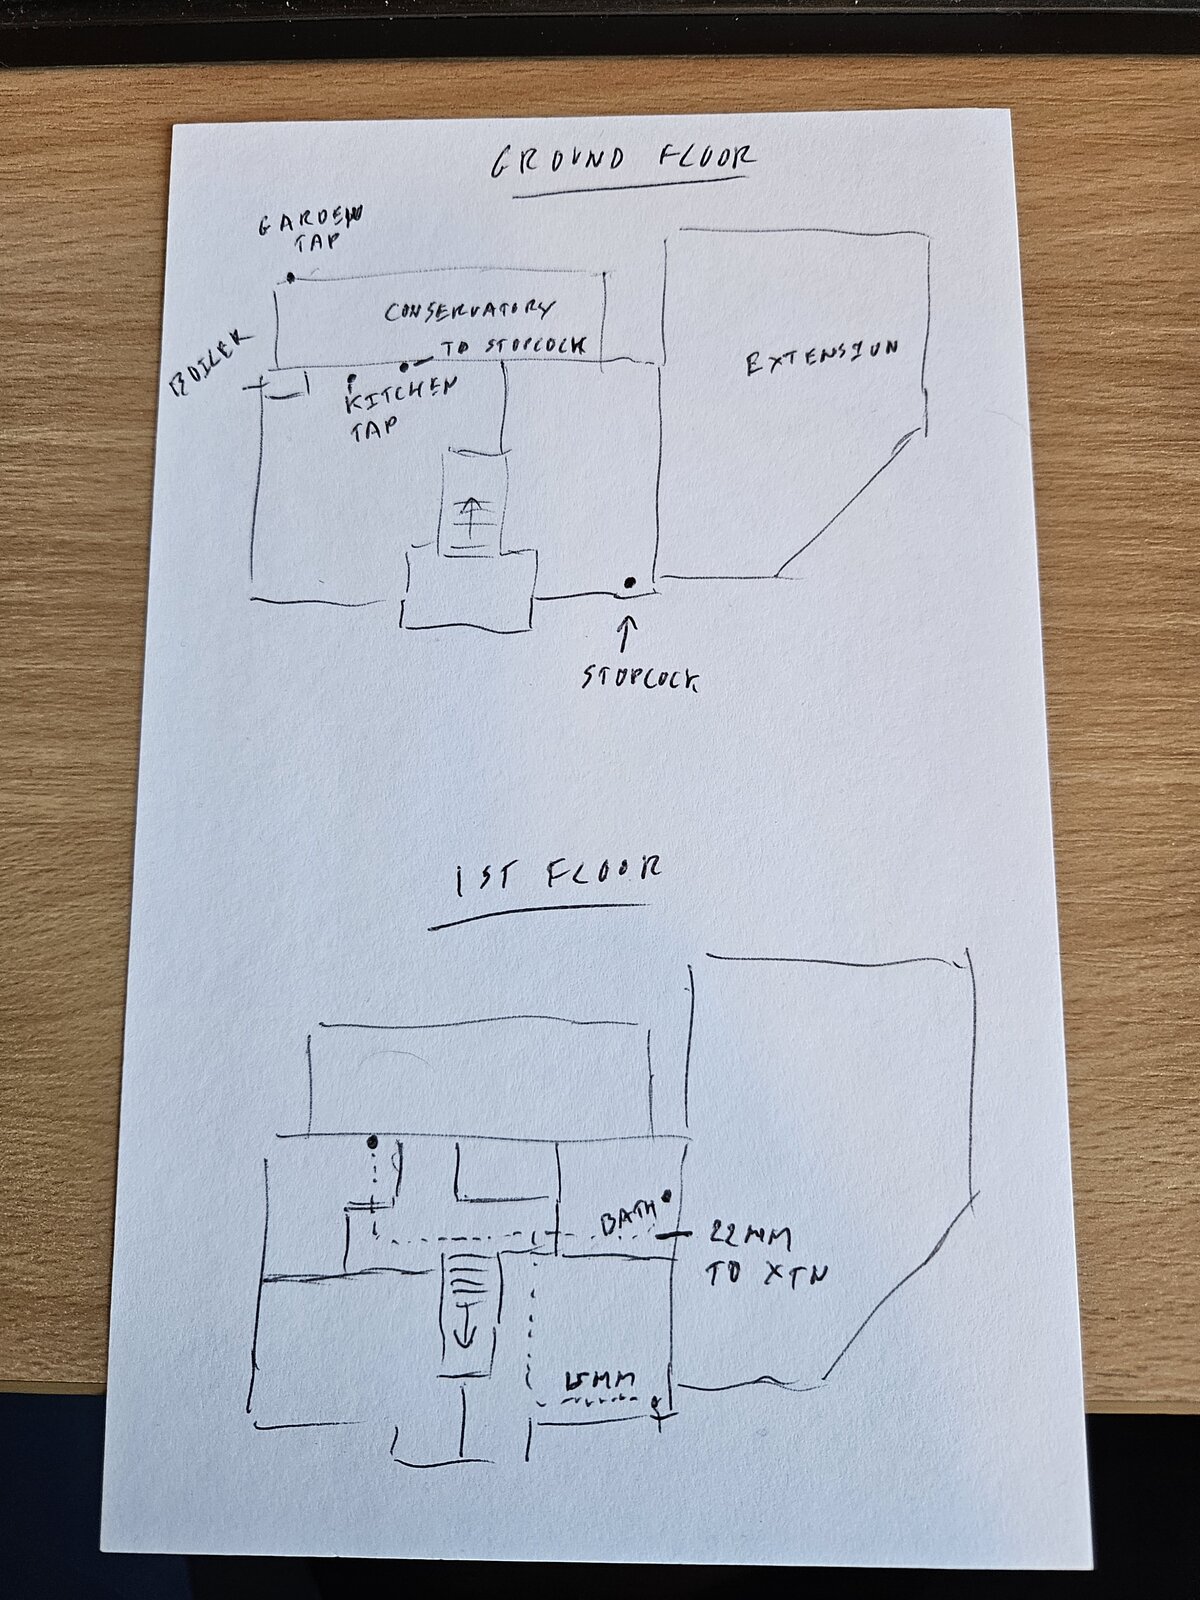 GROUND FLOOR
GARDEN
TAP
CONSERVATORY
BOILER
TO STOPCOCK
KITCHEN
TAP
EXTENSION
STOPCOCK
1ST FLOOR
BATH
22MM
TO XTN
15MM